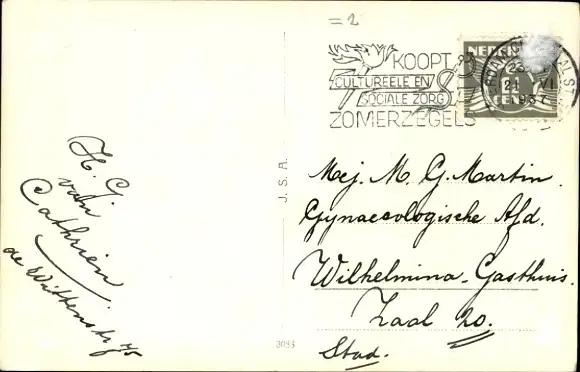 = 2
KOOPT
CULTUREELE EN
SOCIALE ZORG
ZOMERZEGELS
NEDERL
21 VI
1937
H. G.
van
Cathrien
Mej. M. G. Martin.
Gynaecologische Afd.
Wilhelmina-Gasthuis.
Zaal 20.
Stad.
J. S. A.